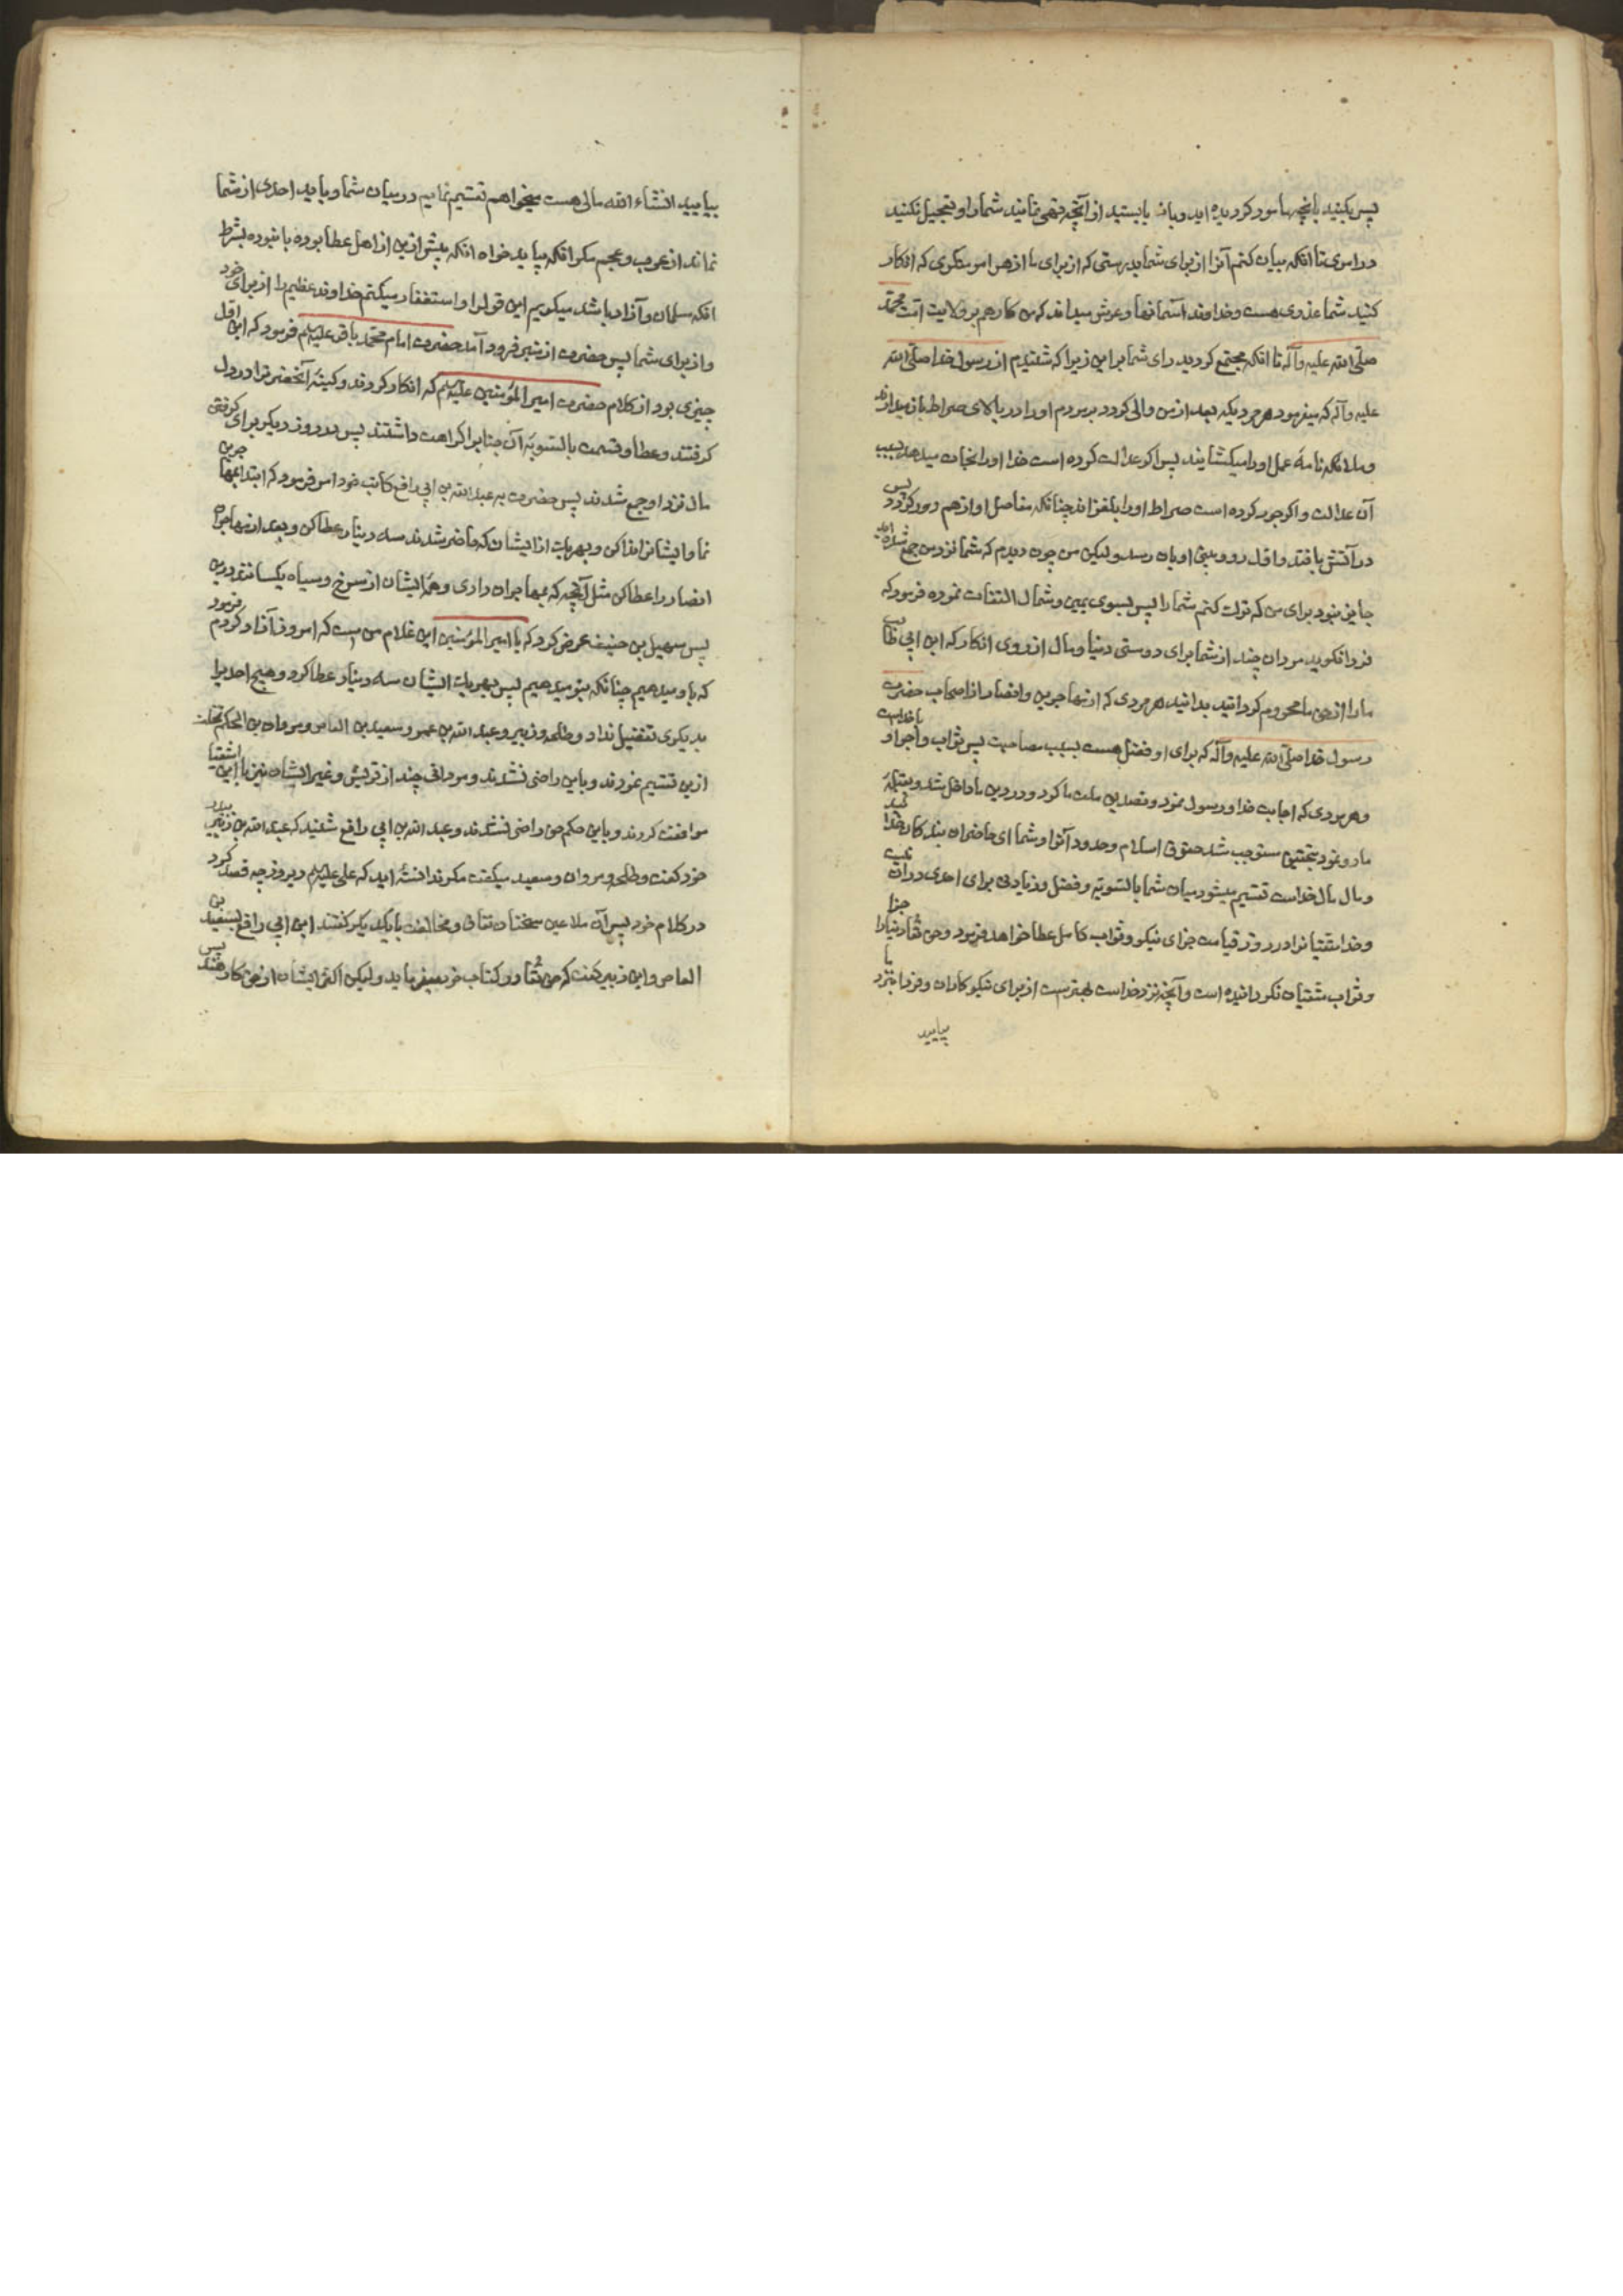 پس بکنید بانچه مامور کردیده اید و باز بایستید از آنچه نهی نمایند شما را و تعجیل نکنید
در امری تا انکه بیان کنم آنرا از برای شما بدرستی که از برای ما از هر امر منکری که انکار
کنید شما عذری هست و خداوند آسمانها و عرش میداند که من کارهم بر ولایت امّت محمّد
صلّی الله علیه وآله تا انکه مجتمع کردید رای شما بر این زیرا که شنیدم از رسول خدا صلّی الله
علیه وآله که میفرمود هر مردیکه بعد از من والی کردد بر مردم او را در بالای صراط باز میدارند
و ملائکه نامهٔ عمل او را میکشایند پس اکر عدالت کرده است خدا او را نجات میدهد بسبب
آن عدالت و اکر جور کرده است صراط او را بلغزاند چنانکه مفاصل او از هم دور کردد پس
در آتش یافتد و اوّل رو و بینی او بان رسد ولیکن من چون دیدم که شما نزد من جمع شده اید
جایز نبود برای من که ترک کنم شما را پس بسوی یمین و شمال التفات نموده فرمود که
فردا نکوید مردان چند از شما برای دوستی دنیا و مال از روی انکار که ابن ابی طالب
ما را از حق ما محروم کردانید بدانید هر مردی که از مهاجرین و انصار از اصحاب حضرت
رسول خدا صلّی الله علیه وآله که برای او فضل هست بسبب مصاحبت پس ثواب و اجر او با خداست
و هر مردی که اجابت خدا و رسول نمود و تصدیق ملت ما کرد و در دین ما داخل شد و بقبلهٔ
ما رو نمود بتحقیق مستوجب شد حقوق اسلام و حدود آنرا و شما ای حاضران بندکان خدائید
و مال مال خداست تقسیم میشود میان شما بالسّویّه و فضل و زیادتی برای احدی در آن نیست
و خدا متقیانرا در روز قیامت جزای نیکو و ثواب کامل عطا خواهد فرمود و حق تعالی دنیا را جزا
و ثواب متقیان نکردانیده است و آنچه نزد خداست بهتر است از برای نیکوکاران و فردا بنزد ما
بیایید
بیایید انشاء الله مالی هست میخواهم تقسیم نمایم در میان شما و باید احدی از شما
نماند از عرب و عجم مکر انکه بیاید خواه انکه پیش ازین از اهل عطا بوده یا نبوده بشرط
انکه مسلمان و آزاد باشد میکویم این قول را و استغفار میکنم خداوند عظیم را از برای خود
و از برای شما پس حضرت از منبر فرود آمد حضرت امام محمّد باقر علیه السلم فرمود که این اوّل
چیزی بود از کلام حضرت امیر المؤمنین علیه السلم که انکار کردند و کینهٔ آنحضرترا در دل
کرفتند و عطا و قسمت بالسّویّه آن جنابرا کراهت داشتند پس در روز دیکر برای کرفتن
مال نزد او جمع شدند پس حضرت به عبد الله بن ابی رافع کاتب خود امر فرمود که ابتدا بمهاجرین
نما و ایشانرا ندا کن و بهریک از ایشان که حاضر شدند سه دینار عطا کن و بعد از مهاجران
انصار را عطا کن مثل آنچه که بمهاجران دادی و همهٔ ایشان از سرخ و سیاه یکسانند درین
پس سهیل بن حنیف عرض کرد که یا امیر المؤمنین این غلام من است که امروز آزاد کردم فرمود
که باو میدهیم چنانکه بتو میدهیم پس بهریک ایشان سه دینار عطا کرد و هیچ احدیرا
بدیکری تفضیل نداد و طلحه و زبیر و عبد الله بن عمر و سعید بن العاص و مروان بن الحکم تخلف
ازین تقسیم نمودند و باین راضی نشدند و مردانی چند از قریش و غیر ایشان نیز با این اشقیا
موافقت کردند و باین حکم حق راضی نشدند و عبد الله بن ابی رافع شنید که عبد الله بن زبیر بپدر
خود کفت و طلحه و مروان و سعید میکفت مکر ندانسته اید که علی علیه السلم دیروز چه قصد کرد
در کلام خود پس آن ملاعین سخنان نفاق و مخالفت با یکدیکر کفتند ابن ابی رافع بسعید بن
العاص و ابن زبیر کفت که حق تعالی در کتاب خود میفرماید ولیکن اکثر ایشان از حق کارهند پس